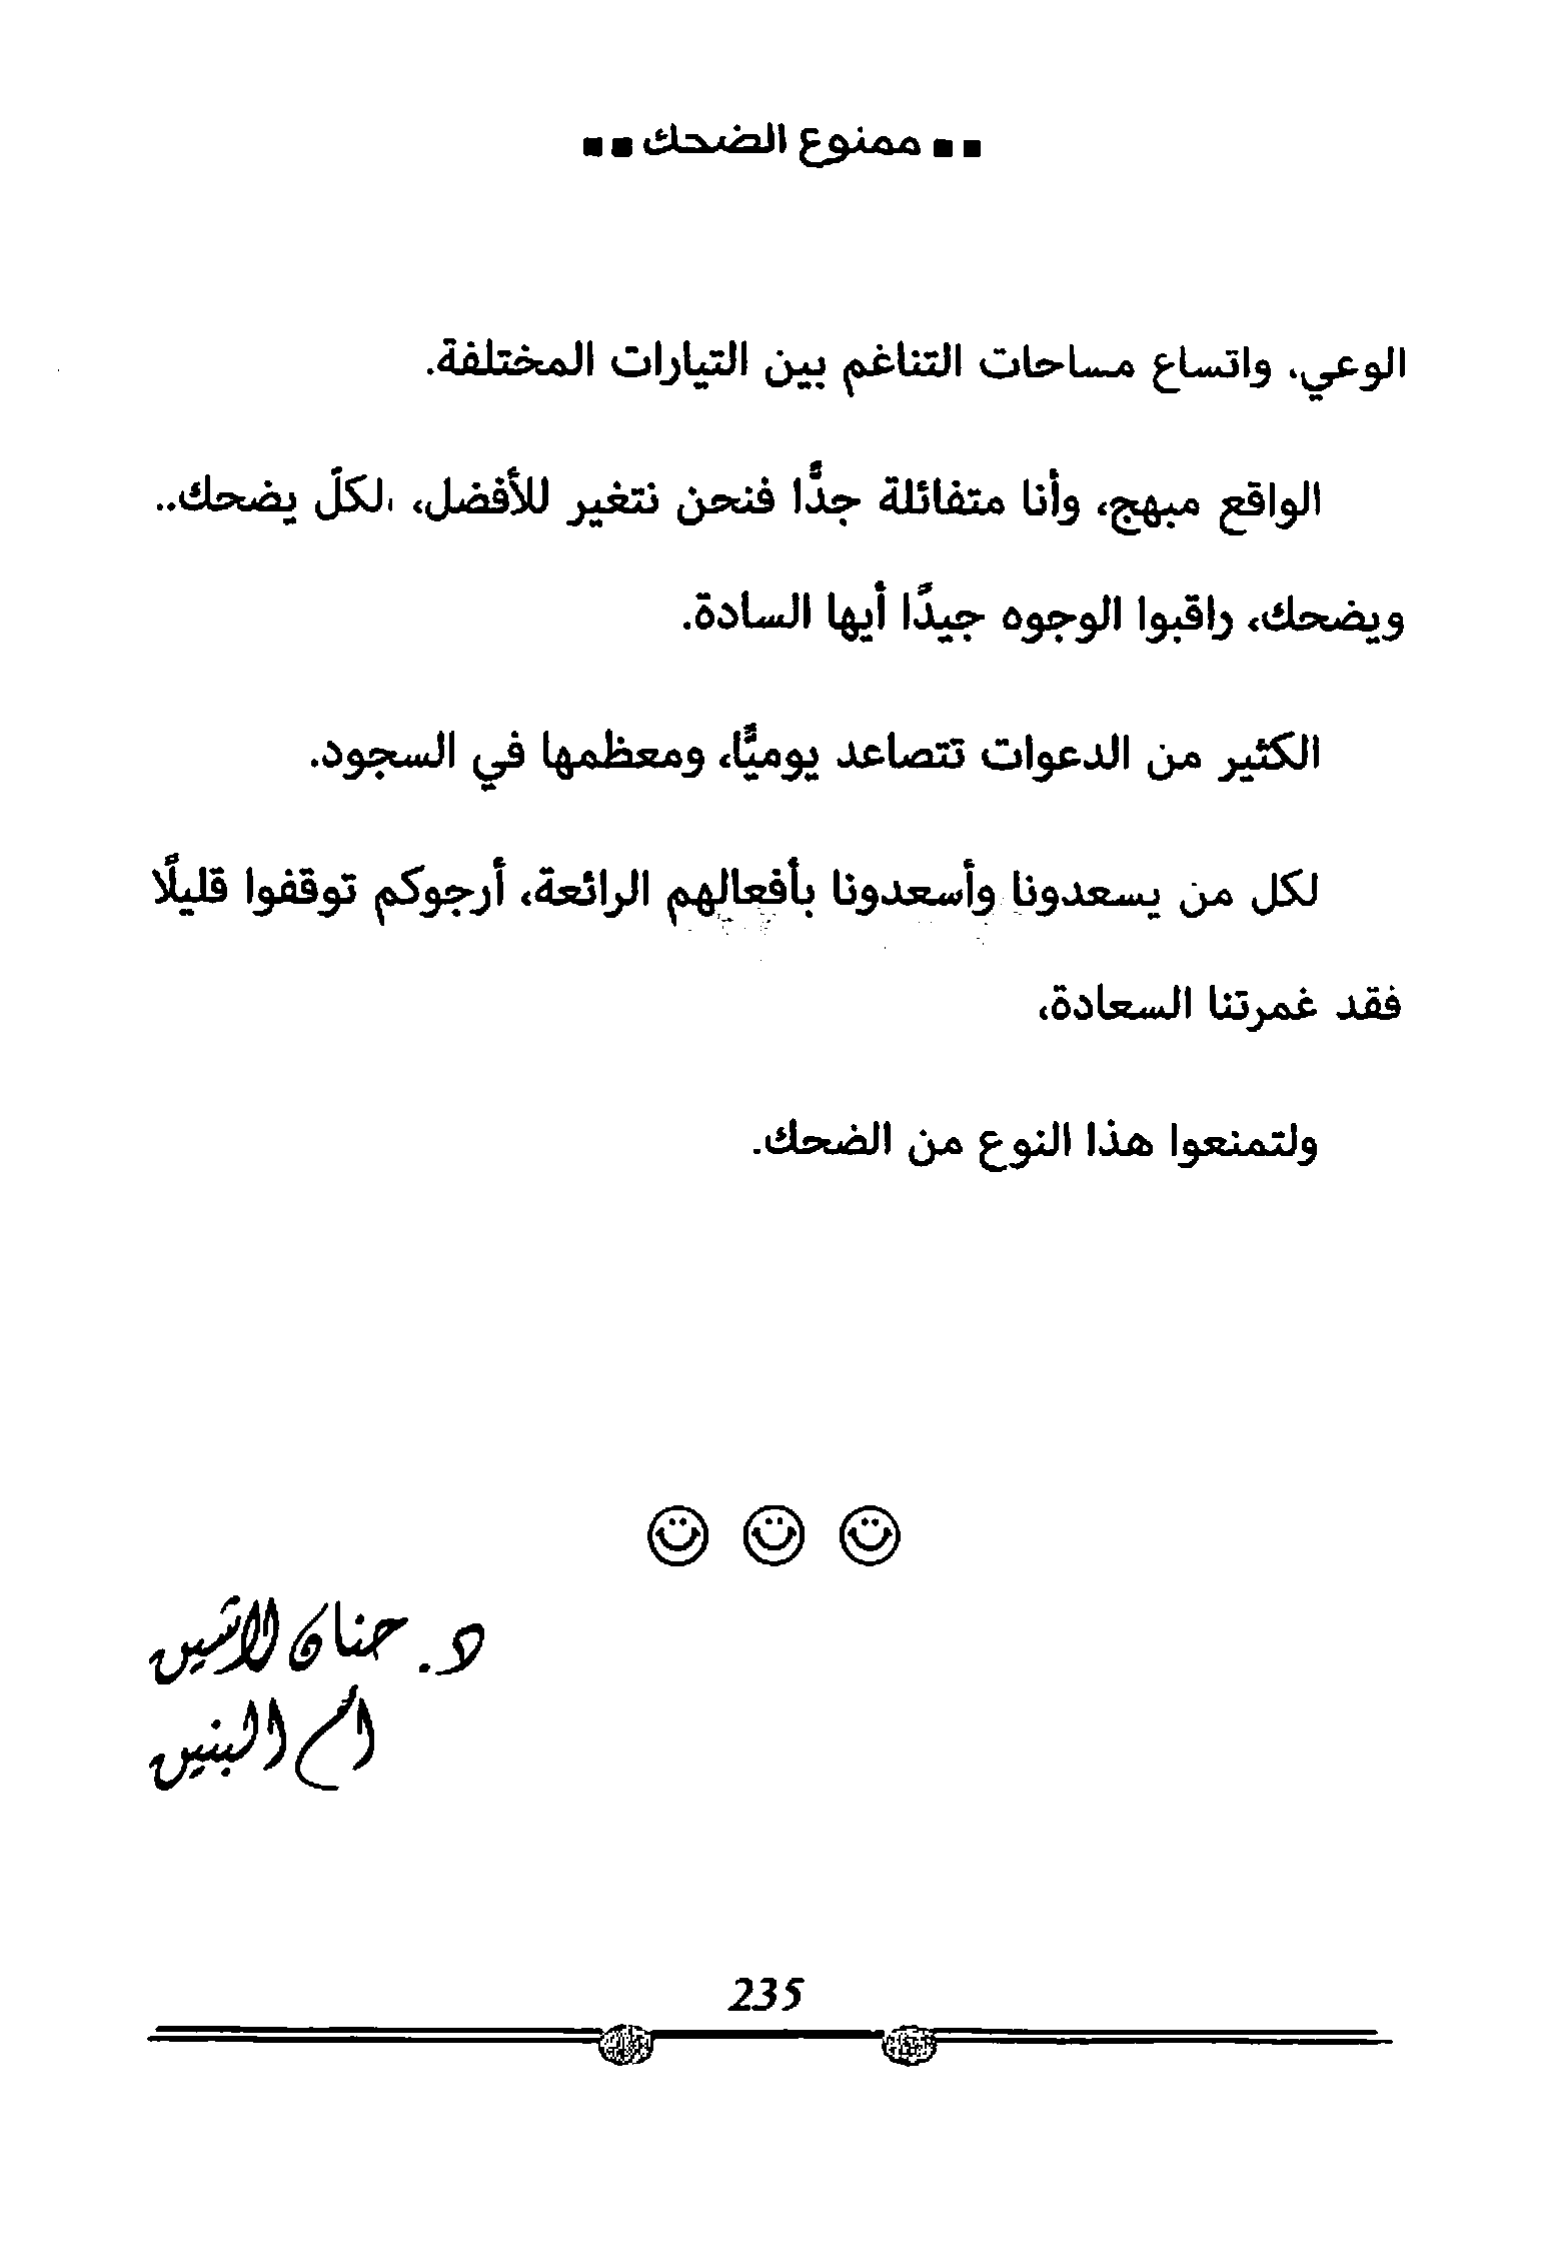 ▪▪ ممنوع الضحك ▪▪
الوعي، واتساع مساحات التناغم بين التيارات المختلفة.
الواقع مبهج، وأنا متفائلة جدًّا فنحن نتغير للأفضل، الكلّ يضحك..
ويضحك، راقبوا الوجوه جيدًا أيها السادة.
الكثير من الدعوات تتصاعد يوميًّا، ومعظمها في السجود.
لكل من يسعدونا وأسعدونا بأفعالهم الرائعة، أرجوكم توقفوا قليلًا
فقد غمرتنا السعادة،
ولتمنعوا هذا النوع من الضحك.
د. حنان لاشين
أم البنين
235